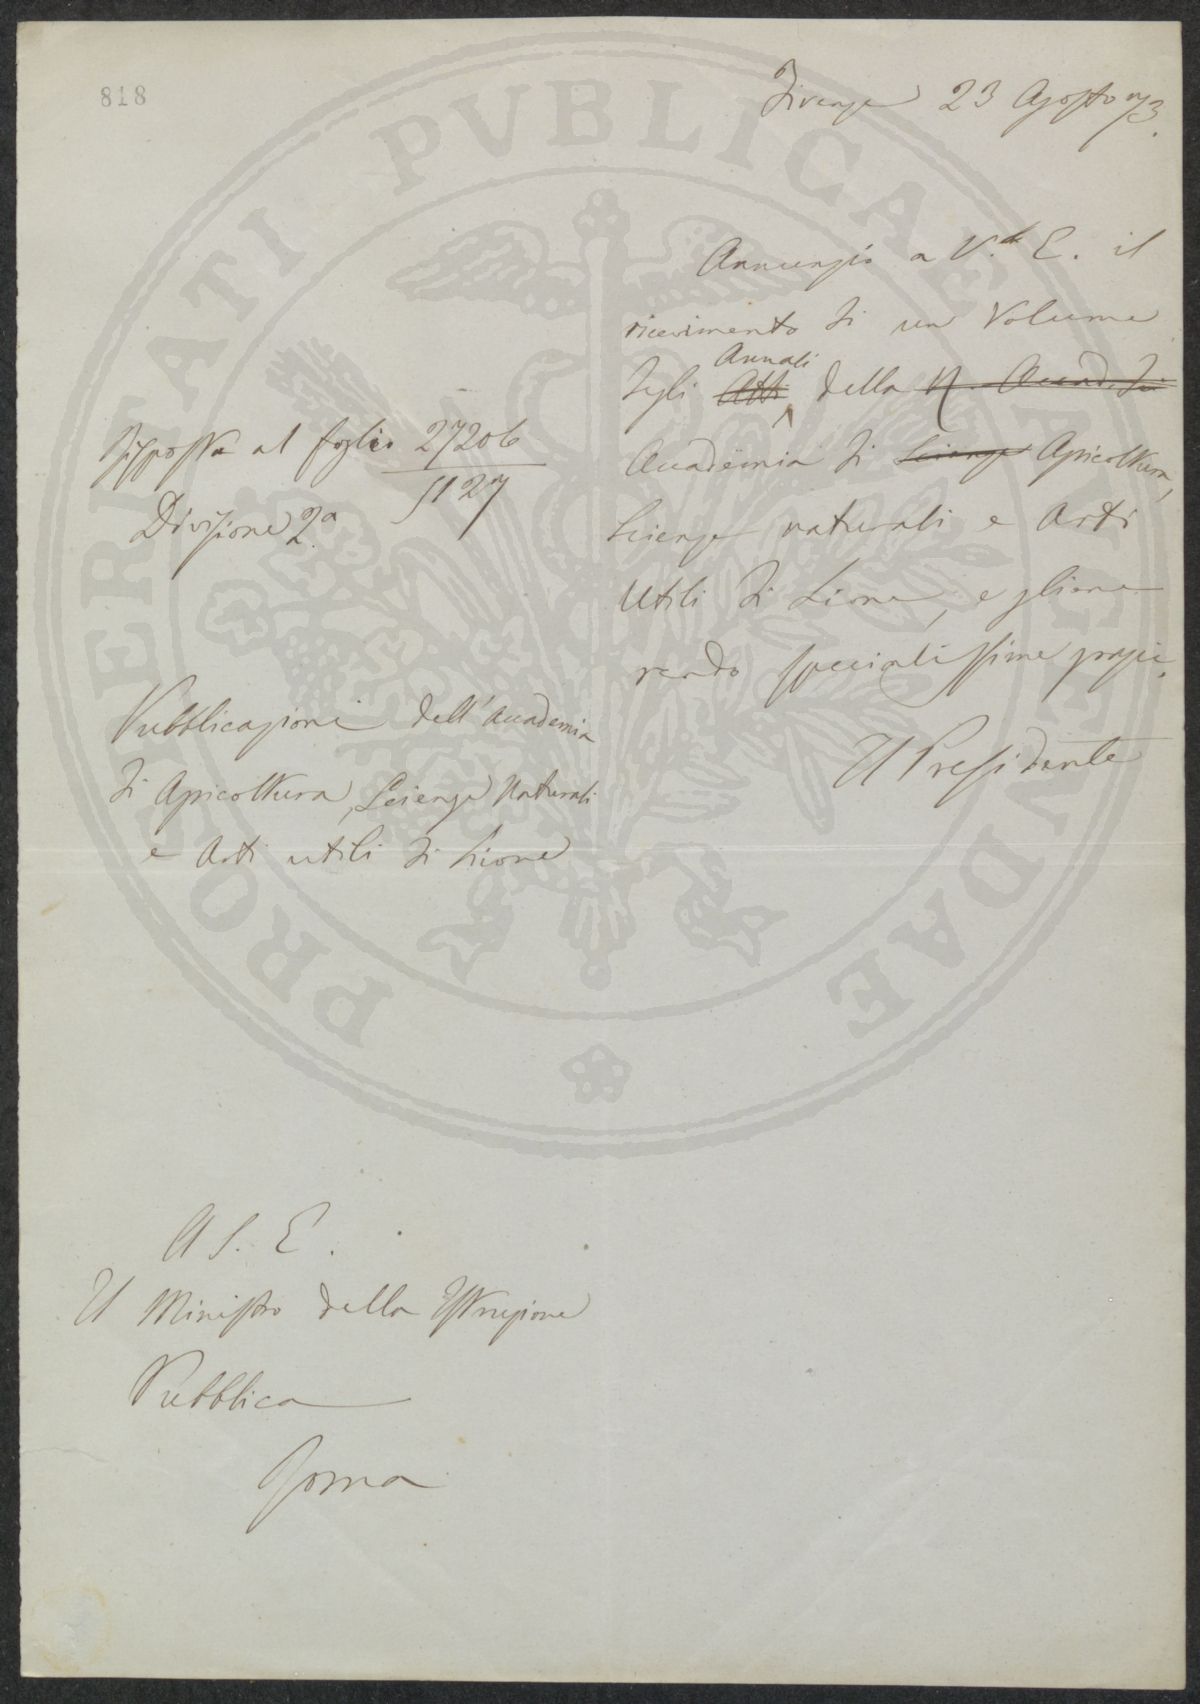 818
Firenze 23 Agosto 73.
Annunzio a V.ª E. il
ricevimento di un Volume
degli Atti Annali della R. Accad. di
Accademia di Scienze Agricoltura,
Scienze naturali e Arti
Utili di Lione, e gliene
rendo specialissime grazie.
Il Presidente
Risposta al foglio 27206
5127
Divisione 2ª
Pubblicazioni dell'Accademia
di Agricoltura, Scienze Naturali
e Arti utili di Lione
A S. E.
Il Ministro della Istruzione
Pubblica
Roma
PROSPERITATI PVBLICAE AVGENDAE